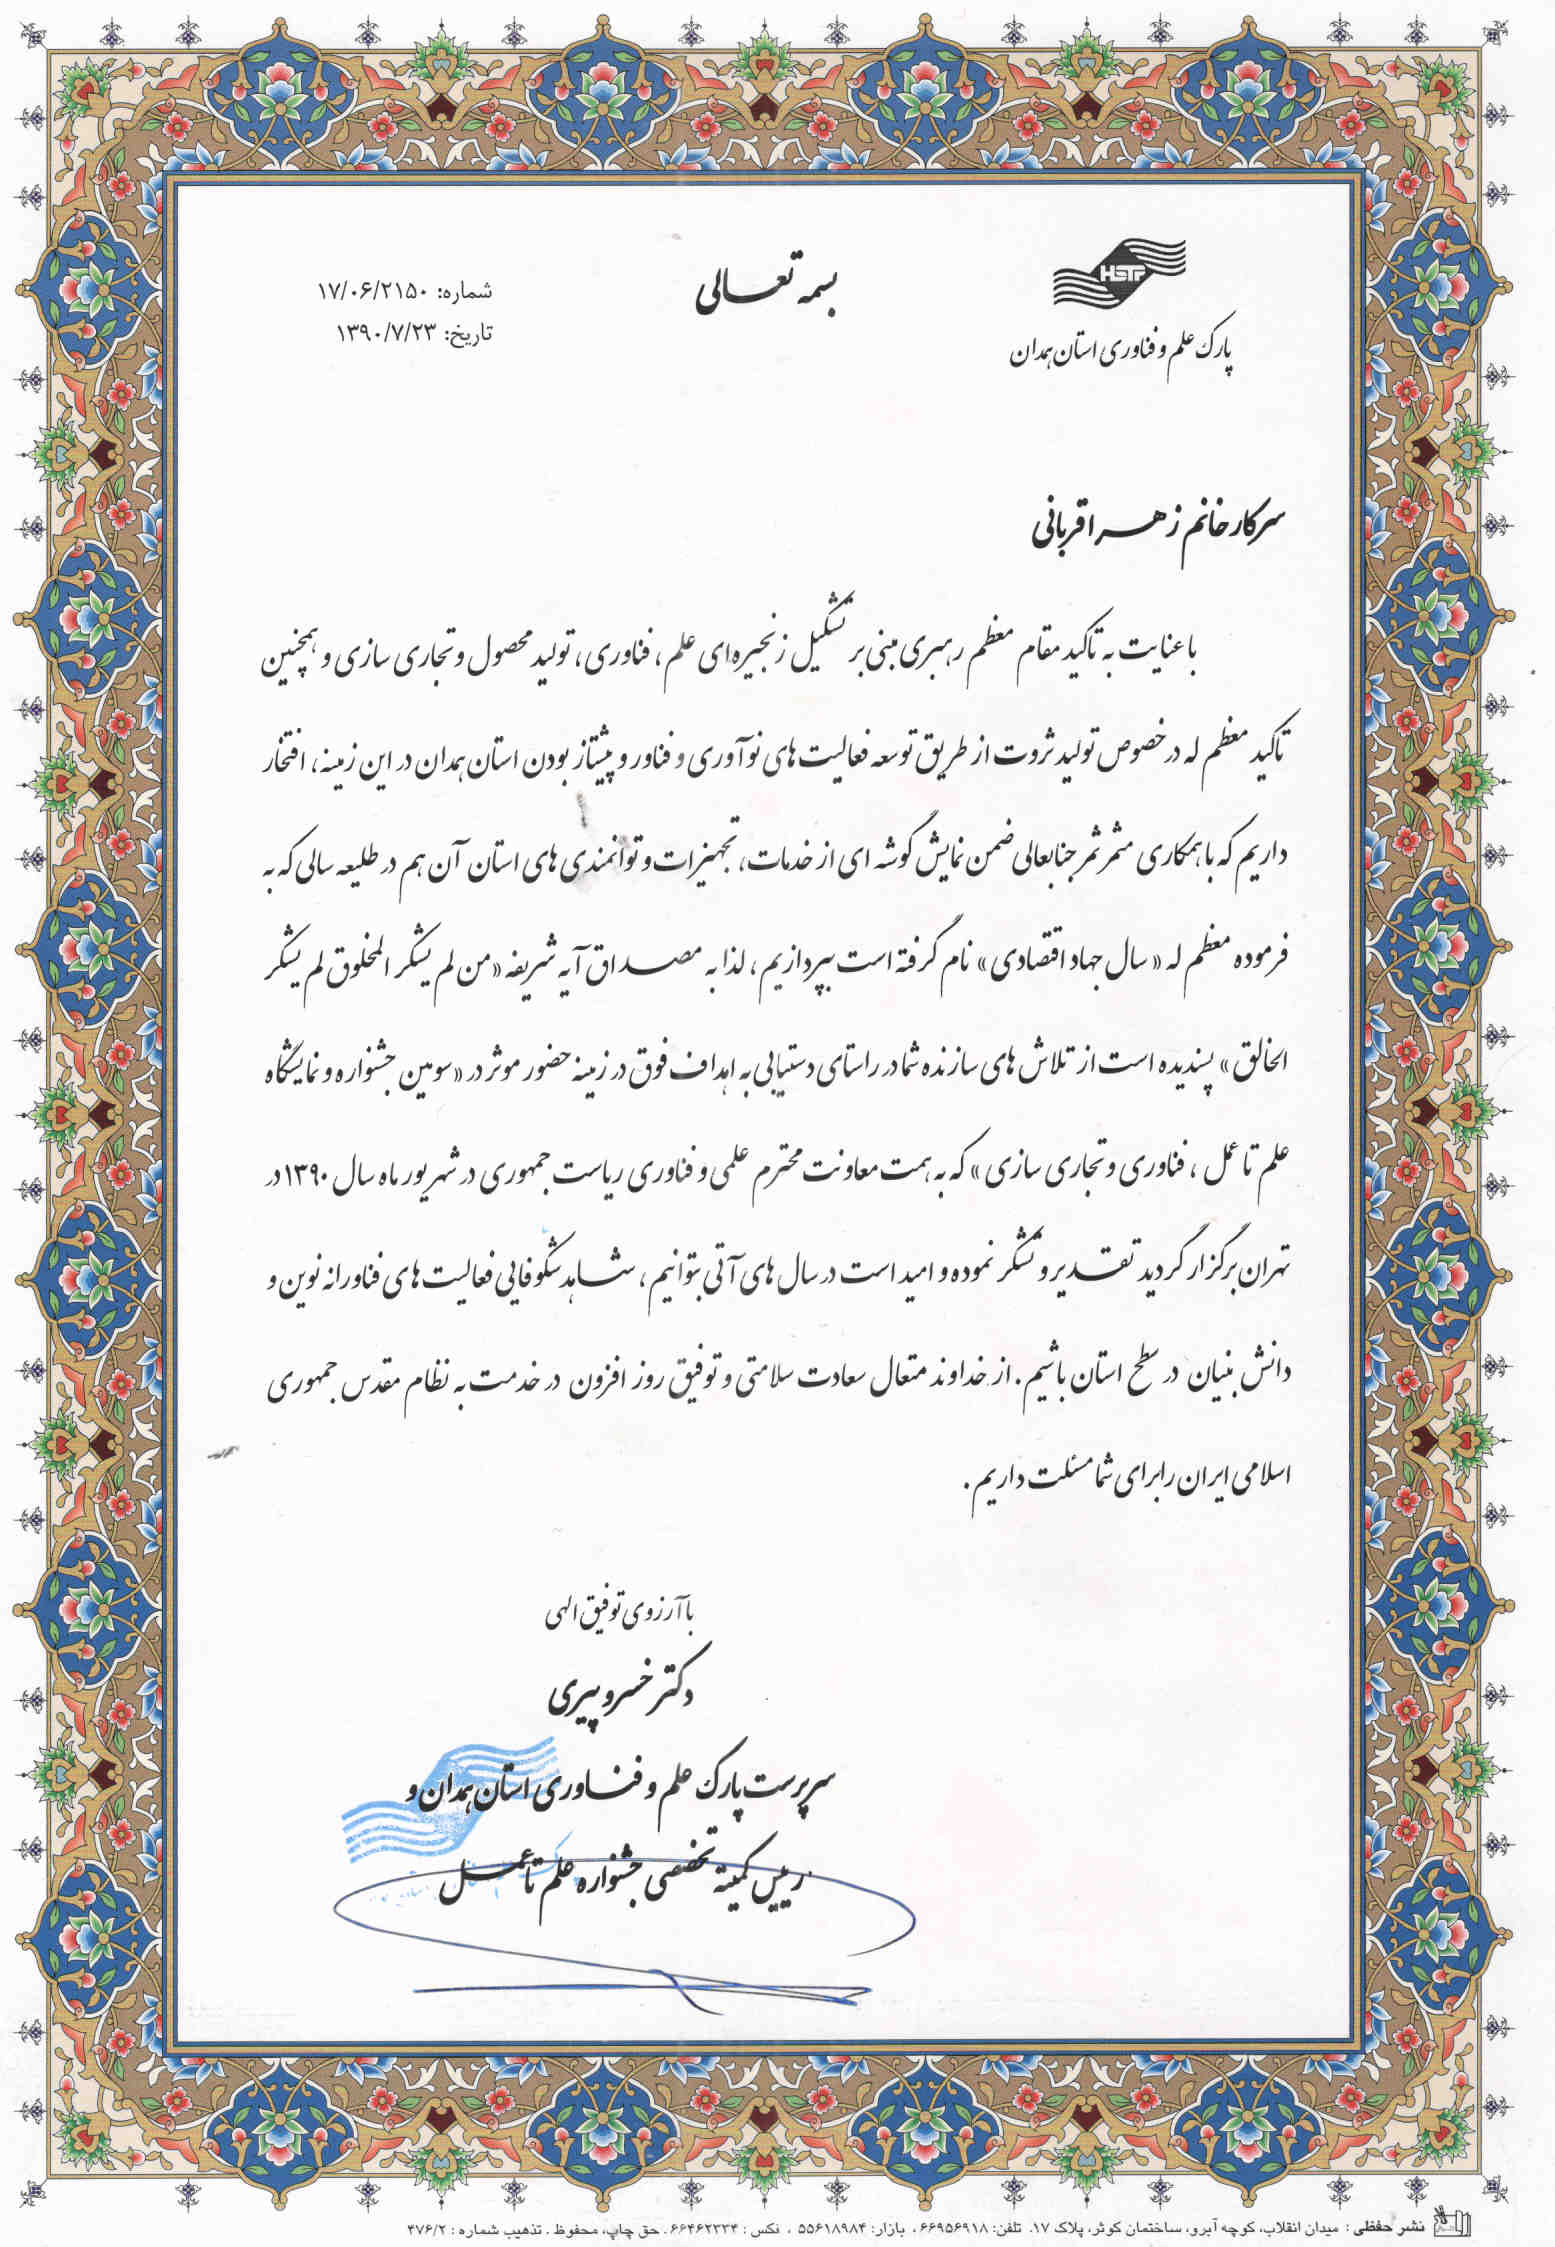 بسمه تعالی
HSTP
پارک علم و فناوری استان همدان
شماره: ۱۷/۰۶/۲۱۵۰
تاریخ: ۱۳۹۰/۷/۲۳
سرکار خانم زهرا قربانی
با عنایت به تاکید مقام معظم رهبری مبنی بر تشکیل زنجیره‌ای علم، فناوری، تولید محصول و تجاری سازی و همچنین
تاکید معظم له در خصوص تولید ثروت از طریق توسعه فعالیت های نوآوری و فناور و پیشتاز بودن استان همدان در این زمینه، افتخار
داریم که با همکاری مثمر ثمر جنابعالی ضمن نمایش گوشه ای از خدمات، تجهیزات و توانمندی های استان آن هم در طلیعه سالی که به
فرموده معظم له «سال جهاد اقتصادی» نام گرفته است بپردازیم، لذا به مصداق آیه شریفه «من لم یشکر المخلوق لم یشکر
الخالق» پسندیده است از تلاش های سازنده شما در راستای دستیابی به اهداف فوق در زمینه حضور موثر در «سومین جشنواره و نمایشگاه
علم تا عمل، فناوری و تجاری سازی» که به همت معاونت محترم علمی و فناوری ریاست جمهوری در شهریور ماه سال ۱۳۹۰ در
تهران برگزار گردید تقدیر و تشکر نموده و امید است در سال های آتی بتوانیم، شاهد شکوفایی فعالیت های فناورانه نوین و
دانش بنیان در سطح استان باشیم. از خداوند متعال سعادت سلامتی و توفیق روز افزون در خدمت به نظام مقدس جمهوری
اسلامی ایران را برای شما مسئلت داریم.
با آرزوی توفیق الهی
دکتر خسرو پیری
سرپرست پارک علم و فناوری استان همدان و
رییس کمیته تخصصی جشنواره علم تا عمل
نشر حفظی: میدان انقلاب، کوچه آبرو، ساختمان کوثر، پلاک ۱۷. تلفن: ۶۶۹۵۶۹۱۸، بازار: ۵۵۶۱۸۹۸۴، نکس: ۶۶۴۶۲۳۳۴. حق چاپ، محفوظ. تذهیب شماره: ۴۷۶/۲